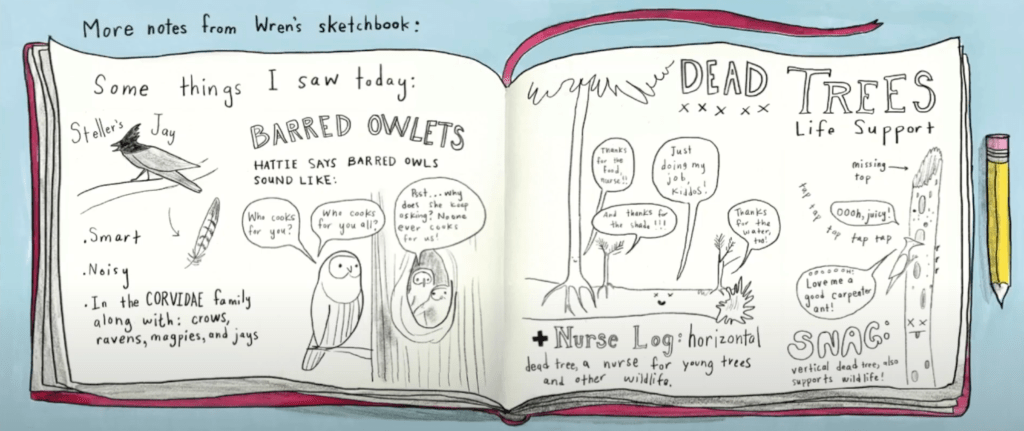 More notes from Wren's sketchbook:
Some things I saw today:
Steller's Jay
. Smart
. Noisy
. In the CORVIDAE family
along with: crows,
ravens, magpies, and jays
BARRED OWLETS
HATTIE SAYS BARRED OWLS
SOUND LIKE:
Who cooks
for you?
Who cooks
for you all?
Psst...why
does she keep
asking? No one
ever cooks
for us!
DEAD
TREES
x x x x x
Life Support
Thanks
for the
food,
nurse!!
Just
doing my
job,
kiddos!
And thanks for
the shade!!!
Thanks
for the
water,
too!
+ Nurse Log: horizontal
dead tree, a nurse for young trees
and other wildlife.
missing
top
tap tap
tap
Oooh, juicy!
top tap tap
Love me a
good carpenter
ant!
x x
SNAG:
vertical dead tree, also
supports wildlife!